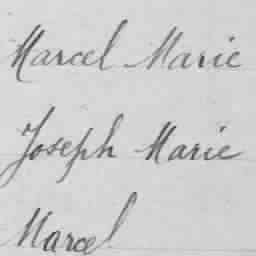 Marcel Marie
Joseph Marie
Marcel